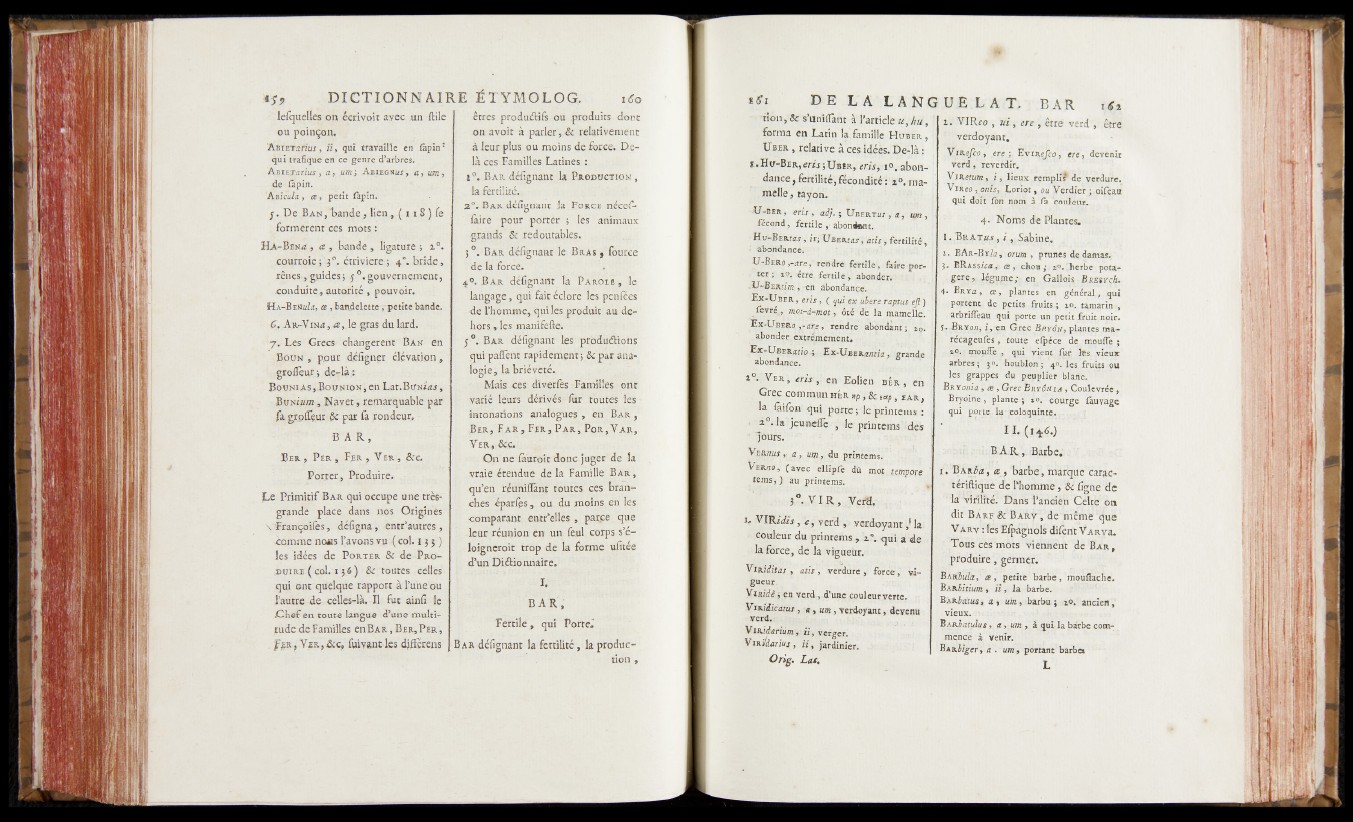 159 DICTIONNAIRE ÉTYMOLOG. 160
lesquelles on écrivoit avec un stile
ou poinçon.
ABIETarius, ii, qui travaille en sapin:
qui trafique en ce genre d'arbres.
ABIETarius, a, um; ABIEGNus, a, um,
de sapin.
ABicula, æ, petit sapin.
5. De BAN, bande, lien, (118) se
formerent ces mots:
HA-BENa, æ, bande, ligature; 2°.
courroie; 3°. étriviere; 4°. bride,
rênes, guides; 5°. gouvernement,
conduite, autorité, pouvoir.
HA-BENula, æ, bandelette, petite bande.
6. AR-VINa, æ, le gras du lard.
7. Les Grecs changerent BAN en
BOUN, pour désigner élévation,
grosseur; de-là:
BOUNIAS, BOUNION, en Lat. BUNias,
BUNium, Navet, remarquable par
sa grosseur & par sa rondeur.
BAR,
BER, PER, FER, VER, &c.
Porter, Produire.
Le Primitif BAR qui occupe une très-
grande place dans nos Origines
Françoises, désigna, entr'autres,
comme nous l'avons vu (col. 133)
les idées de PORTER & de PRO-
DUIRE (col. 136) & toutes celles
qui ont quelque rapport à l'une ou
l'autre de celles-là. Il fut ainsi le
Chef en toute langue d'une multi-
tude de Familles en BAR, BER, PER,
FER, VER, &c, suivant les différens
êtres productifs ou produits dont
on avoit à parler, & relativement
à leur plus ou moins de force. De-
là ces Familles Latines:
1°. BAR désignant la PRODUCTION,
la fertilité.
2°. BAR désignant la FORCE néces-
saire pour porter; les animaux
grands & redoutables.
3°. BAR désignant le BRAS, source
de la force.
4°. BAR désignant la PAROLE, le
langage, qui fait éclore les pensées
de l'homme, qui les produit au de-
hors, les manifeste.
5°. BAR désignant les productions
qui passent rapidement; & par ana-
logie, la briéveté.
Mais ces diverses Familles ont
varié leurs dérivés sur toutes les
intonations analogues, en BAR,
BER, FAR, FER, PAR, POR, VAR,
VER, &c.
On ne sauroit donc juger de la
vraie étendue de la Famille BAR,
qu'en réunissant toutes ces bran-
ches éparses, ou du moins en les
comparant entr'elles, parce que
leur réunion en un seul corps s'é-
loigneroit trop de la forme usitée
d'un Dictionnaire.
I.
BAR,
Fertile, qui Porte.
BAR désignant la fertilité, la produc-
tion,
161 DE LA LANGUE LAT. BAR 162
tion, & s'unissant à l'article u, hu,
forma en Latin la famille HUBER,
UBER, relative à ces idées. De-là:
1. HU-BER, eris; UBER, eris, 1°. abon-
dance, fertilité, fécondité: 2°. ma-
melle, tayon.
U-BER, eris, adj.; UBERTus, a, um,
fécond, fertile, abondant.
HU-BERtas, is; UBERtas, atis, fertilité,
abondance.
U-BERo,-are, rendre fertile, faire por-
ter; 2°. être fertile, abonder.
U-BERtim, en abondance.
EX-UBER, eris, (qui ex ubere raptus est)
sevré, mot-à-mot, ôté de la mamelle.
EX-UBERo,-are, rendre abondant; 2°.
abonder extrêmement.
EX-UBERatio; EX-UBERantia, grande
abondance.
2°. VER, eris, en Eolien BÊR, en
Grec commun HÊR ηρ, & εαρ, EAR,
la saison qui porte; le printems:
2°. la jeunesse, le printems des
jours.
VERnus, a, um, du printems.
VERno, (avec ellipse du mot tempore
tems,) au printems.
3°. VIR, Verd.
1. VIRidis, e, verd, verdoyant, la
couleur du printems, 2°. qui a de
la force, de la vigueur.
VIRiditas, atis, verdure, force, vi-
gueur
VIRidè, en verd, d'une couleur verte.
VIRidicatus, a, um, verdoyant, devenu
verd.
VIRidarium, ii, verger.
VIRidarius, ii, jardinier.
Orig. Lat.
2. VIReo, ui, ere, être verd, être
verdoyant.
VIResco, ere; EVIResco, ere, devenir
verd, reverdir.
VIRetum, i, lieux remplis de verdure.
VIReo, onis, Loriot, ou Verdier; oiseau
qui doit son nom à sa couleur.
4. Noms de Plantes.
1. BRATus, i, Sabine.
2. BAR-BYla, orum, prunes de damas.
3. BRAssica, æ, chou; 2°. herbe pota-
gere, légume; en Gallois BRESYCH.
4. BRYa, æ, plantes en général, qui
portent de petits fruits; 2°. tamarin,
arbrisseau qui porte un petit fruit noir.
5. BRYon, i, en Grec BRYÔN, plantes ma-
récageuses, toute espéce de mousse;
2°. mousse, qui vient sur les vieux
arbres; 3°. houblon; 4°. les fruits ou
les grappes du peuplier blanc.
BRYonia, æ, Grec BRYÔNIA, Coulevrée,
Bryoine, plante; 2°. courge sauvage
qui porte la coloquinte.
II. (146.)
BAR, Barbe.
1. BARba, æ, barbe, marque carac-
téristique de l'homme, & signe de
la virilité. Dans l'ancien Celte on
dit BARF & BARV, de même que
VARV: les Espagnols disent VARVA.
Tous ces mots viennent de BAR,
produire, germer.
BARbula, æ, petite barbe, moustache.
BARbitium, ii, la barbe.
BARbatus, a, um, barbu; 2°. ancien,
vieux.
BARbatulus, a, um, à qui la barbe com-
mence à venir.
BARbiger, a. um, portant barbe
L